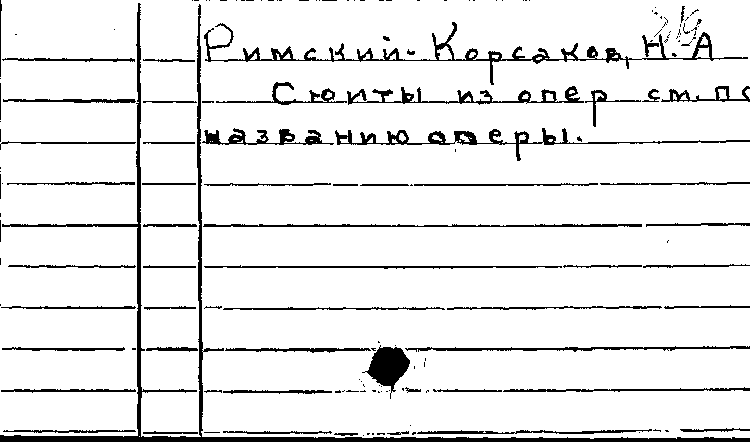 Римский-Корсаков, Н.-А
Сюиты из опер см. по
названию оперы.